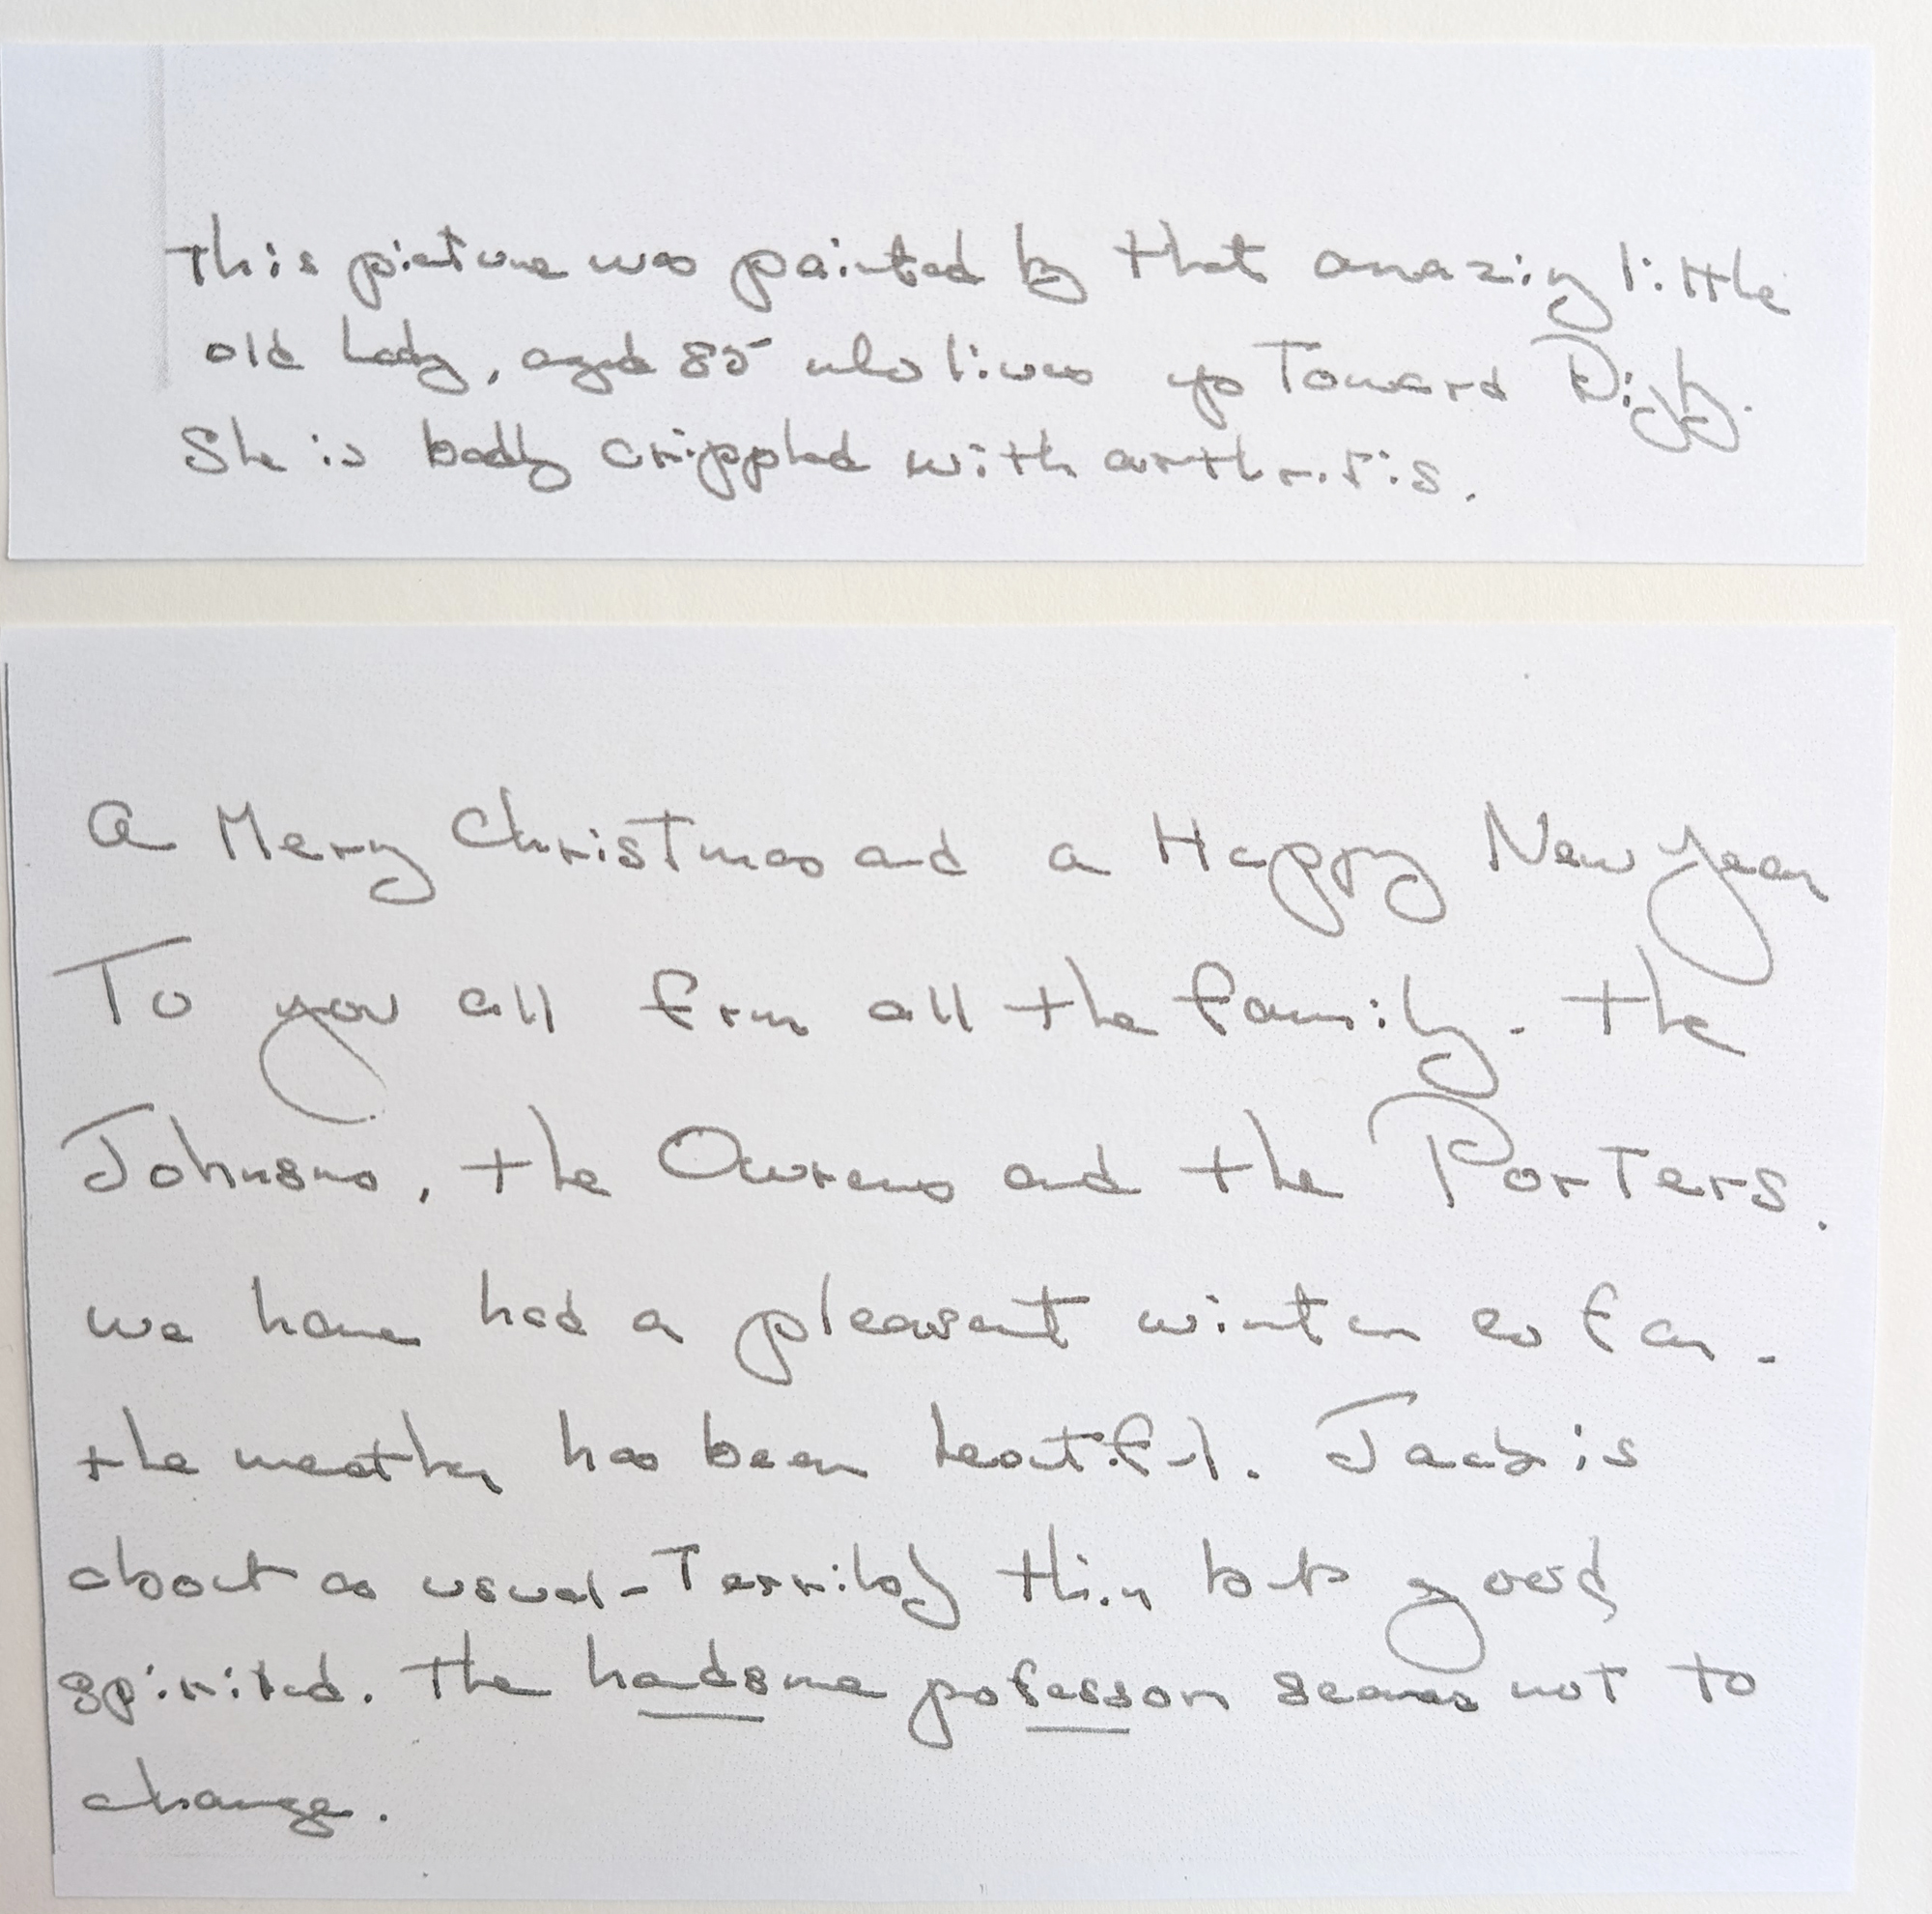 This picture was painted by that amazing little
old lady, aged 85 who lives up Toward Digby.
She is badly crippled with arthritis.
A Merry Christmas and a Happy New Year
To you all from all the family. The
Johnsons, the Owrens and the Porters.
We have had a pleasant winter so far.
The weather has been beautiful. Jack is
about as usual - Terribly thin but good
spirited. The handsome professor seems not to
change.